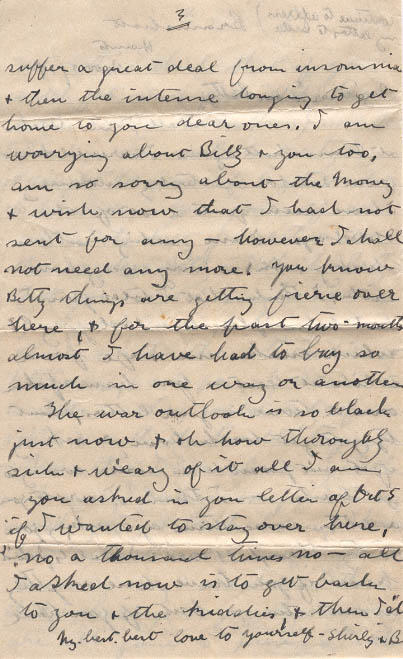 3
continue to address
my letters to
suffer a great deal from insomnia
+ then the intense longing to get
home to you dear ones. I am
worrying about Billy + you too,
am so sorry about the money
+ wish now that I had not
sent for any - however I shall
not need any more. You know
Betty things are getting fierce over
here, & for the past two months
almost I have had to buy so
much in one way or another
The war outlook is so black
just now + oh how thoroughly
sick + weary of it all I am
you asked in you letter of Oct 5
if I wanted to stay over here,
no a thousand times no - all
I asked now is to get back
to you + the kiddies + then I'll
My best best love to yourself - Shirly + B